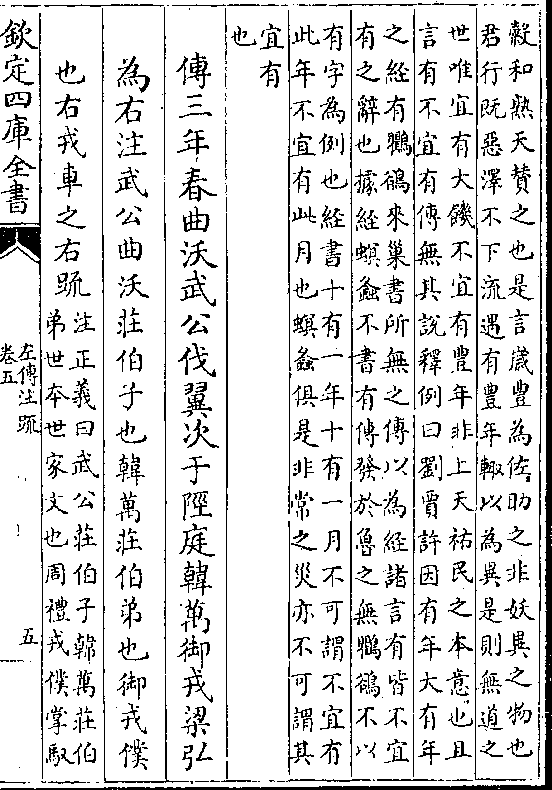 榖和熟天贊之也是言歲豐為佐助之非妖異之物也
君行既惡澤不下流遇有豐年輙以為異是則無道之
世唯宜有大饑不宜有豐年非上天祐民之本意也且
言有不宜有傳無其說釋例曰劉賈許因有年大有年
之經有鸜鵒來巢書所無之傳以為經諸言有皆不宜
有之辭也據經螟螽不書有傳發於魯之無鸜鵒不以
有字為例也經書十有一年十有一月不可謂不宜有
此年不宜有此月也螟螽俱是非常之災亦不可謂其
宜有
也
傳三年春曲沃武公伐翼次于陘庭韓萬御戎梁弘
為右注武公曲沃莊伯子也韓萬莊伯弟也御戎僕
也右戎車之右疏注正義曰武公莊伯子韓萬莊伯
弟世本世家文也周禮戎僕掌馭
欽定四庫全書
左傳注疏
卷五
五